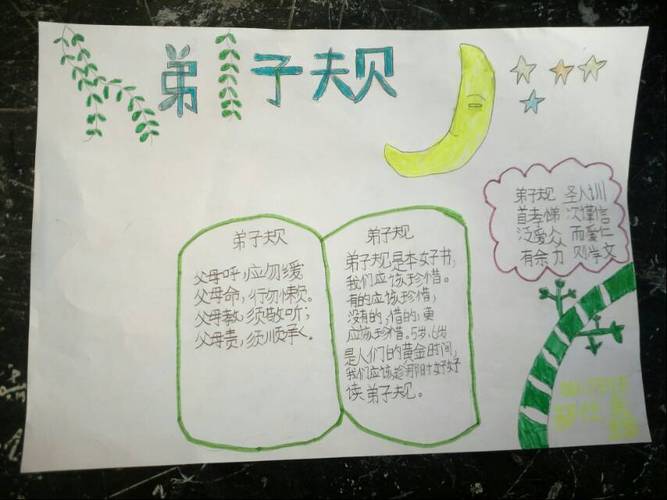 弟子规
弟子规 圣人训
首孝悌 次谨信
泛爱众 而爱仁
有余力 则学文
弟子规
父母呼,应勿缓
父母命,行勿懒。
父母教,须敬听;
父母责,须顺承。
弟子规
弟子规是本好书,
我们应该珍惜。
有的应该珍惜,
没有的,借的,更
应该珍惜。5岁、6岁
是人们的黄金时间,
我们应该趁那时好好
读弟子规。